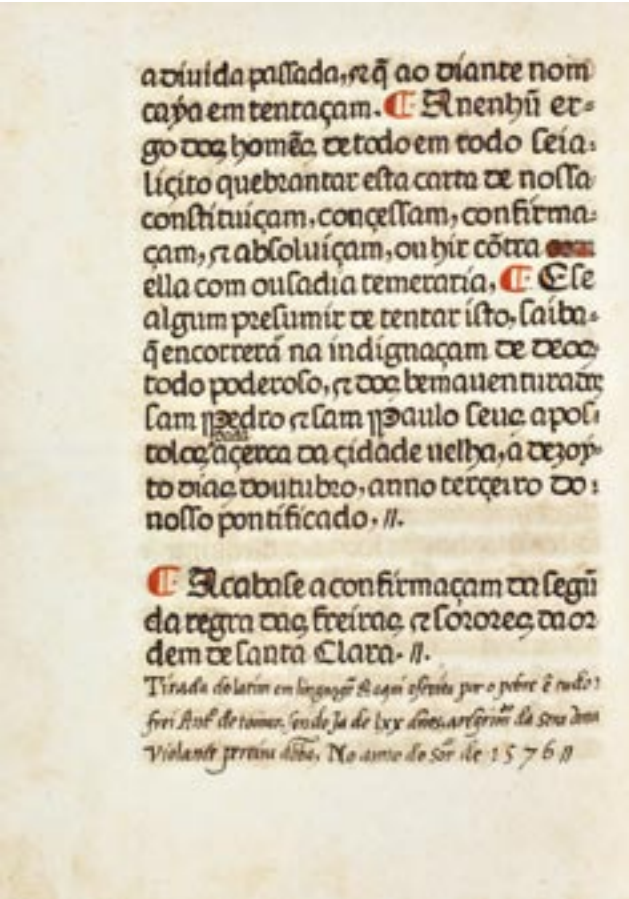 a diuida passada, ⁊ q̃ ao diante nom
caya em tentaçam. ¶ A nenhũ er-
go dos homẽs de todo em todo seia
liçito quebrantar esta carta de nossa
constituiçam, conçessam, confirma-
çam, ⁊ absoluiçam, ou hir cõtra
ella com ousadia temeraria, ¶ E se
algum presumir de tentar isto, saiba
q̃ encorrerá na indignaçam de deos
todo poderoso, ⁊ dos bemauenturados
sam Pedro ⁊ sam Paulo seus apos-
tolos, açerca da çidade uelha, a dezoy-
to dias doutubro, anno terçeiro do
nosso pontificado, //.
¶ Acabase a confirmaçam da segũ
da regra das freiras ⁊ sorores da or
dem de santa Clara. //.
Tirada do latim em lingoagẽ & aqui escrita por o pobre ẽ tudo
frei Antº de tomar, sendo ja de lxx años, a da Sora dona
Violante pereira No anno do sor de 1576 //